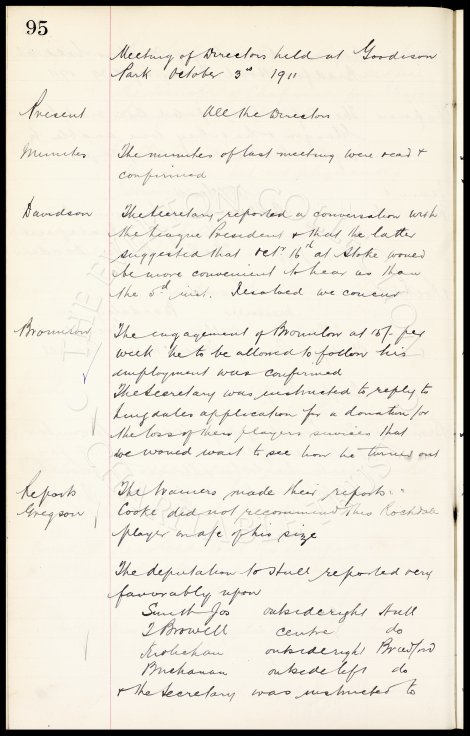 95
Meeting of Directors held at Goodison
Park October 3rd 1911
Present All the Directors
Minutes The minutes of last meeting were read &
confirmed
Davidson The Secretary reported a conversation with
the League President & that the latter
suggested that Octr 16th at Stoke would
be more convenient to hear us than
the 5th inst. Resolved we concur
Bromilow The engagement of Bromilow at 15/- per
week he to be allowed to follow his
employment was confirmed
The Secretary was instructed to reply to
Lingdales application for a donation for
the loss of their players services that
we would wait to see how he turned out
Reports The trainers made their reports:-
Gregson Cooke did not recommend this Rochdale
player on a/c of his size
The deputation to Hull reported very
favorably upon
Smith Jos outside right Hull
T Browell centre do
outside right Bradford
Buchanan outside left do
& the Secretary was instructed to